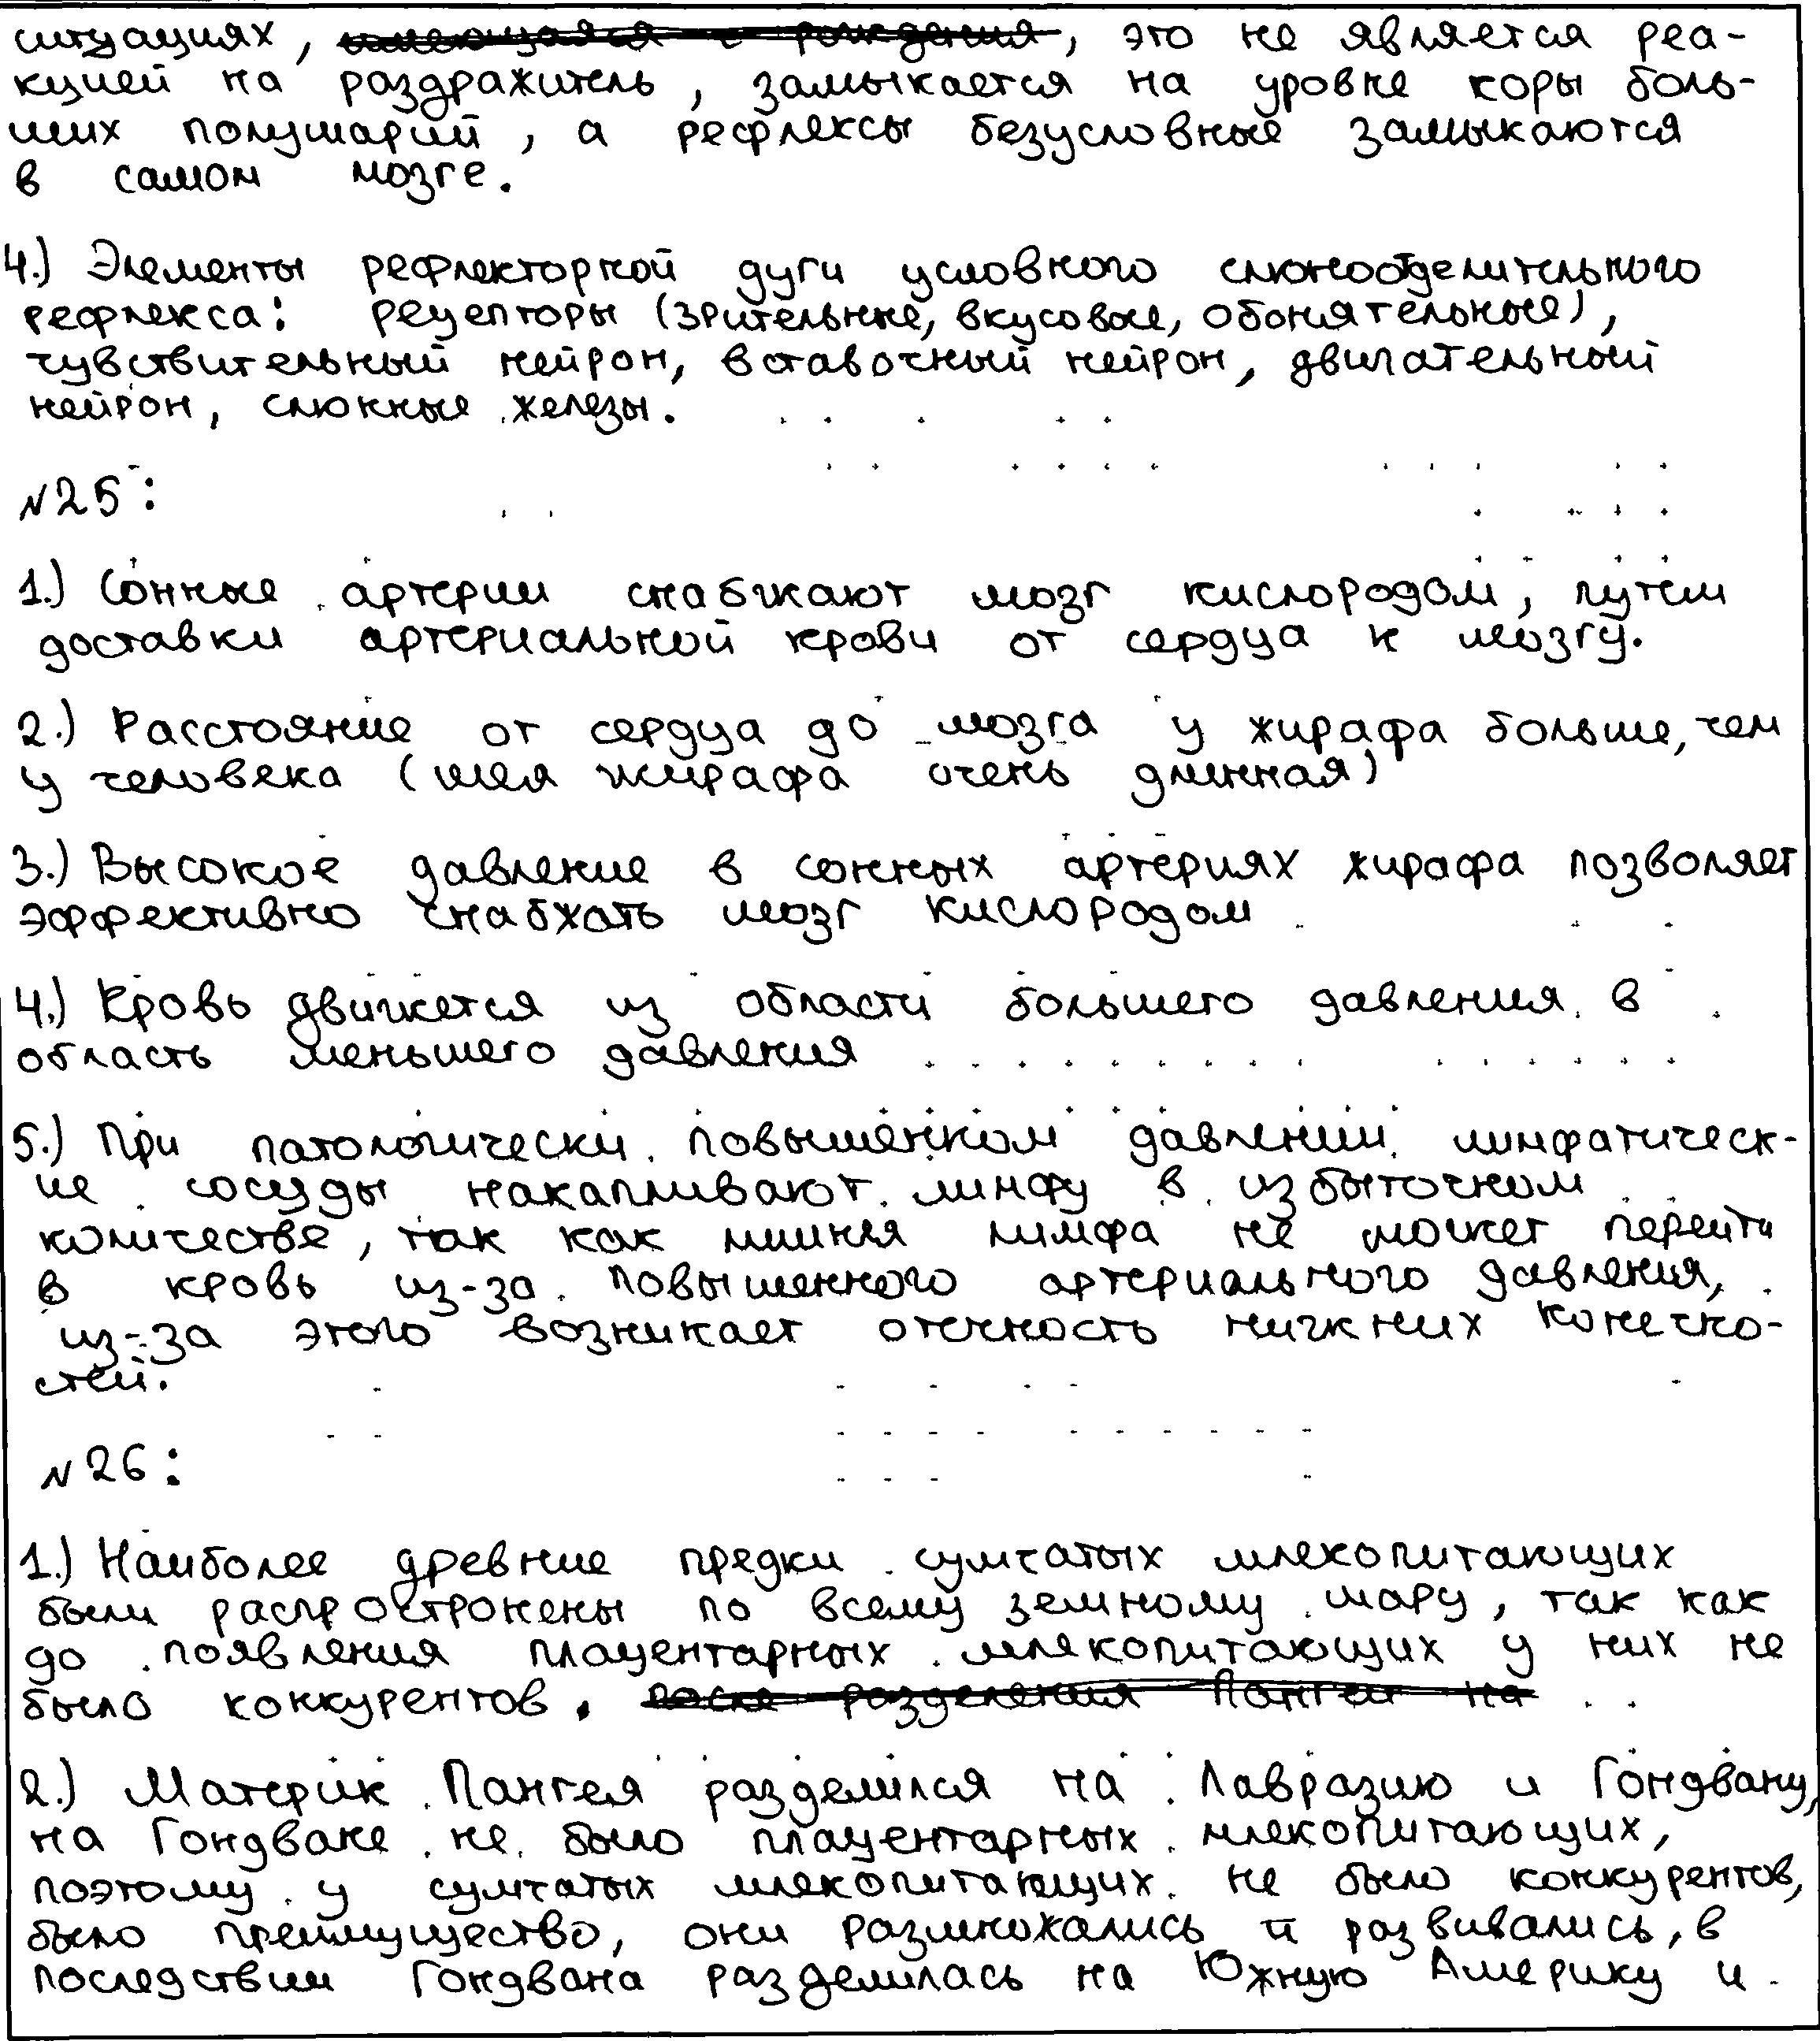 ситуациях, имеющаяся с рождения, это не является реа-
кцией на раздражитель, замыкается на уровне коры боль-
ших полушарий, а рефлексы безусловные замыкаются
в самом мозге.
4.) Элементы рефлекторной дуги условного слюноотделительного
рефлекса: рецепторы (зрительные, вкусовые, обонятельные),
чувствительный нейрон, вставочный нейрон, двигательный
нейрон, слюнные железы.
№25:
1.) Сонные артерии снабжают мозг кислородом, путем
доставки артериальной крови от сердца к мозгу.
2.) Расстояние от сердца до мозга у жирафа больше, чем
у человека (шея жирафа очень длинная)
3.) Высокое давление в сонных артериях жирафа позволяет
эффективно снабжать мозг кислородом
4.) Кровь движется из области большего давления в
область меньшего давления
5.) При патологически повышенном давлении лимфатическ-
ие сосуды накапливают лимфу в избыточном
количестве, так как лишняя лимфа не может перейти
в кровь из-за повышенного артериального давления,
из-за этого возникает отечность нижних конечно-
стей.
№26:
1.) Наиболее древние предки сумчатых млекопитающих
были распространены по всему земному шару, так как
до появления плацентарных млекопитающих у них не
было конкурентов. после разделения Пангеи на
2.) Материк Пангея разделился на Лавразию и Гондвану,
на Гондване не было плацентарных млекопитающих,
поэтому у сумчатых млекопитающих не было конкурентов,
было преимущество, они размножались и развивались, в
последствии Гондвана разделилась на Южную Америку и